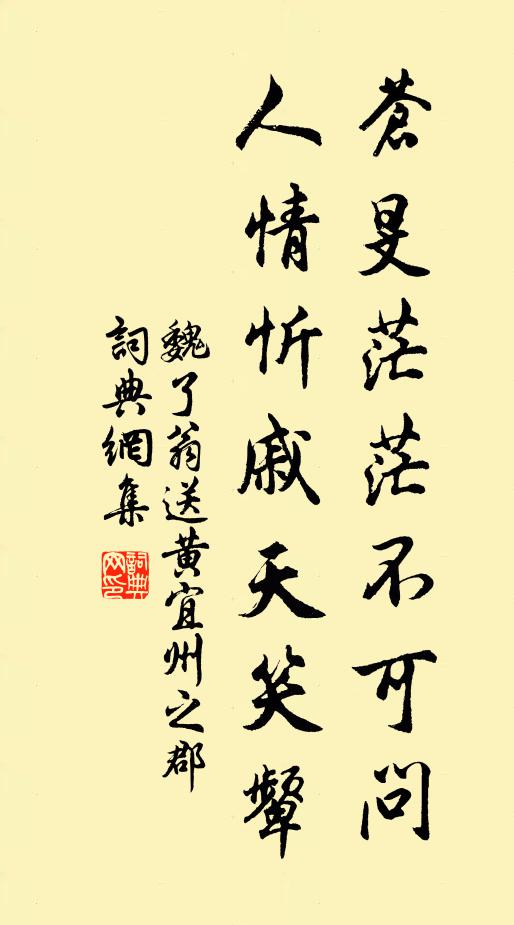 蒼旻茫茫不可問
人情忻戚天笑顰
魏了翁送黃宜州之郡
詞典網集
詞典
网印